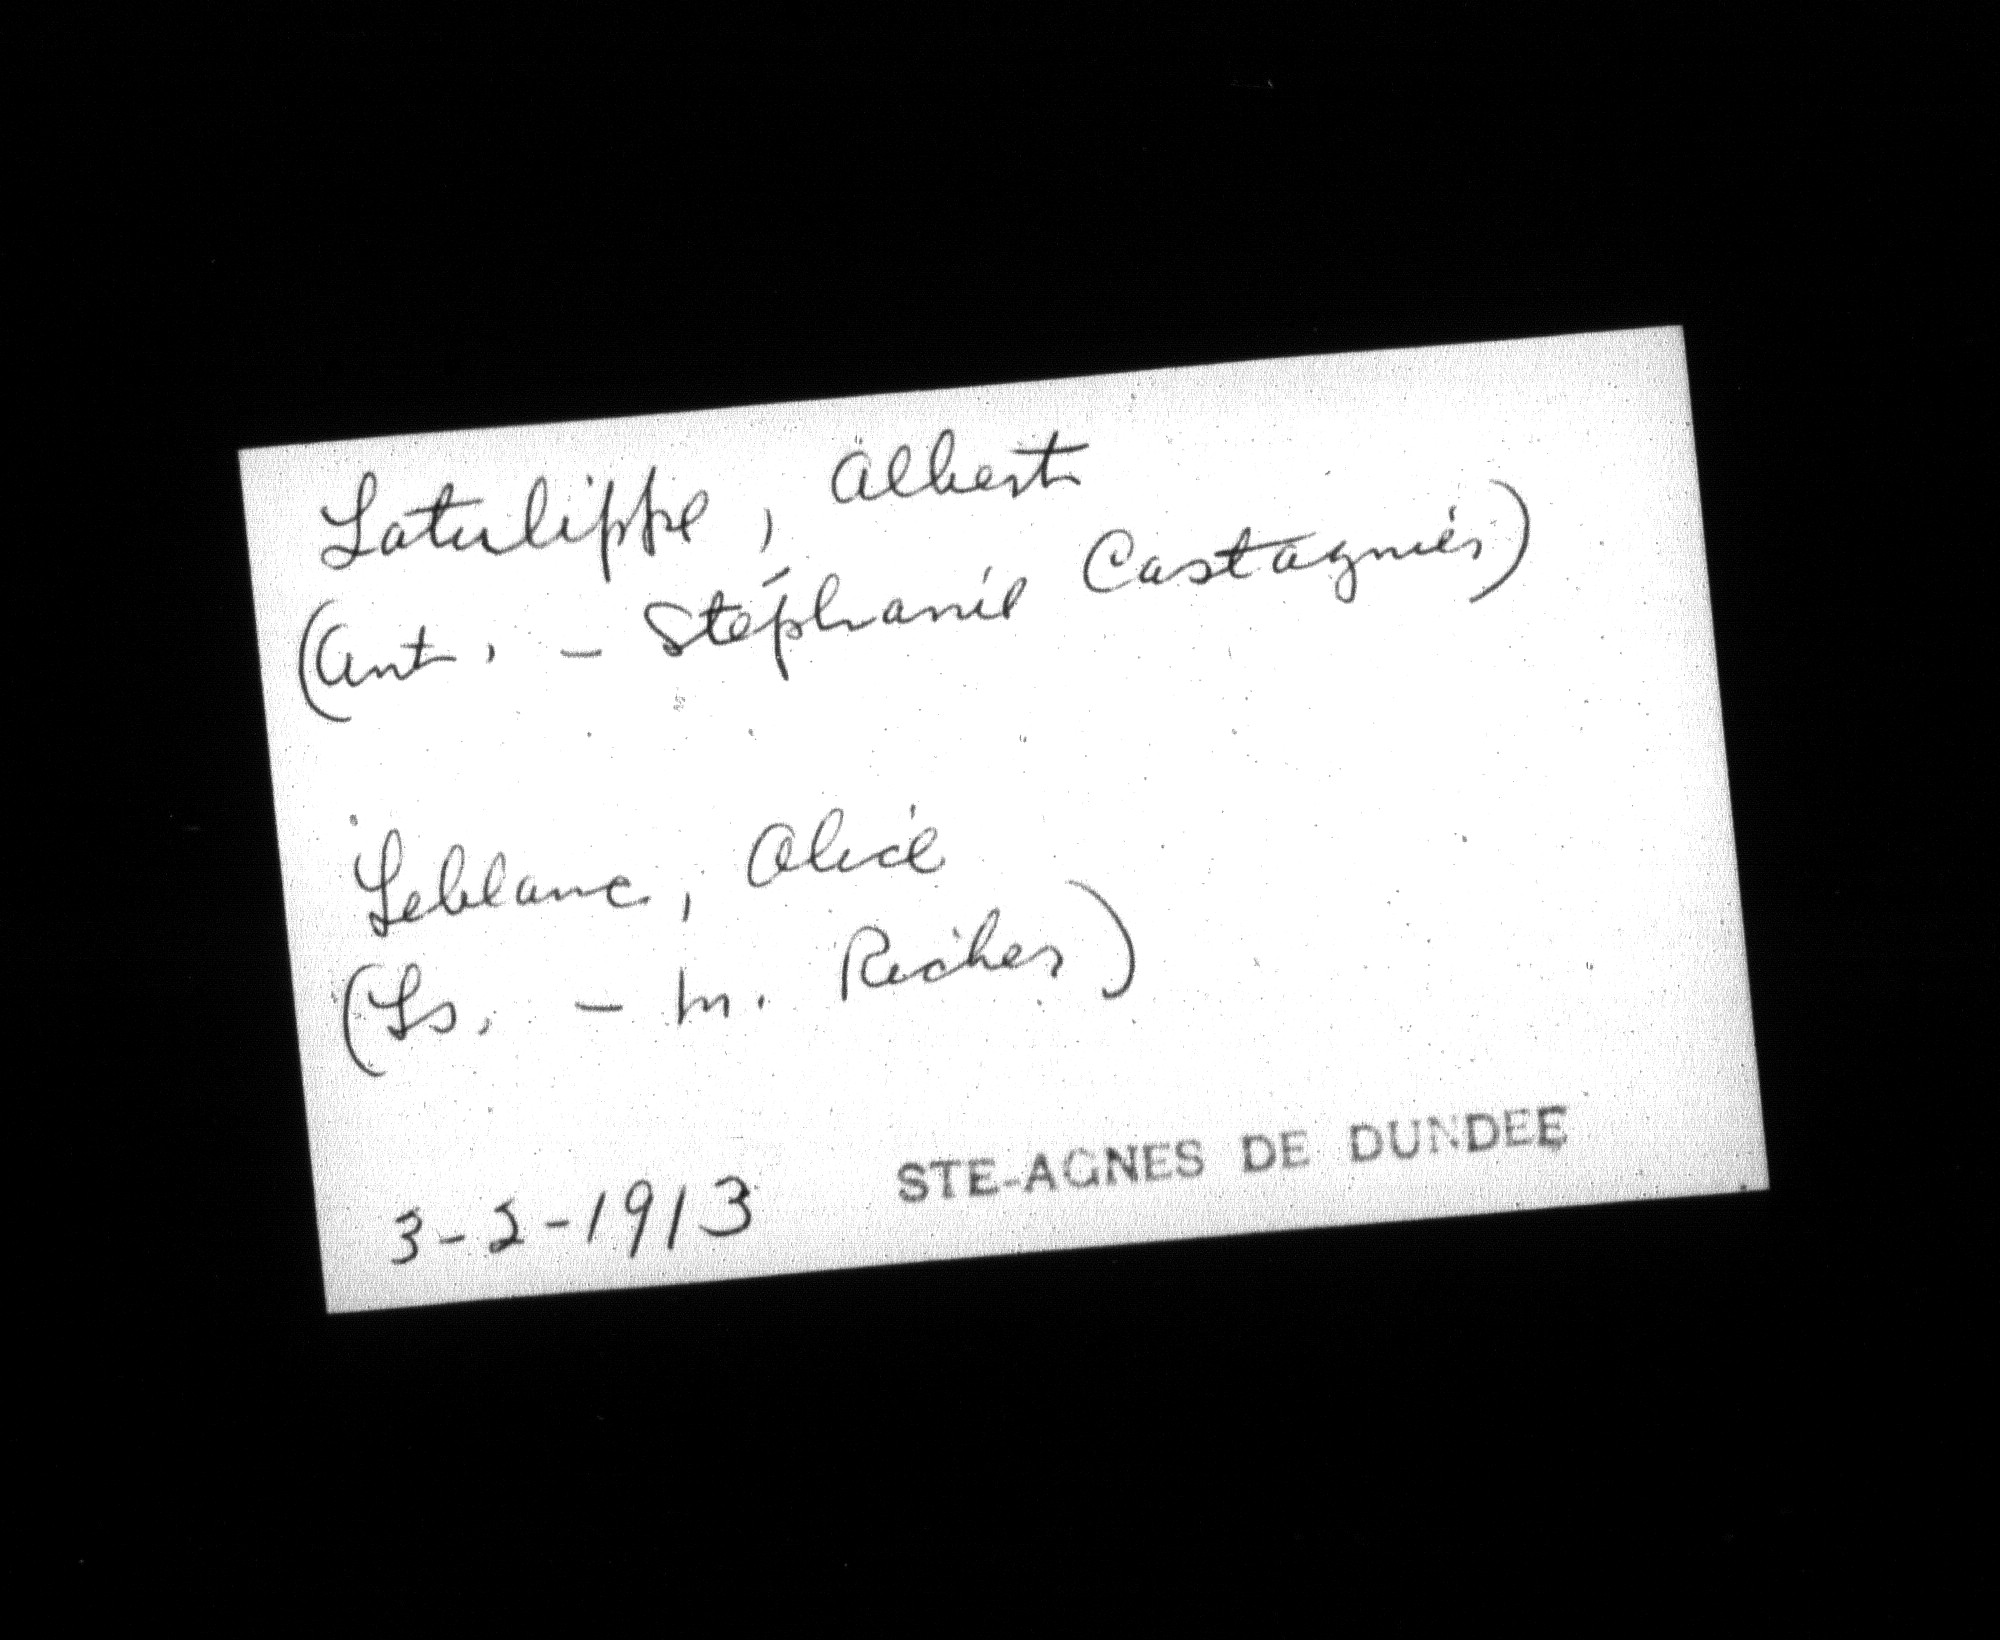 Latulippe, Albert
(Ant. - Stéphanie Castagnier)
Leblanc, Alice
(Ls. - M. Richer)
3-2-1913 STE-AGNES DE DUNDEE